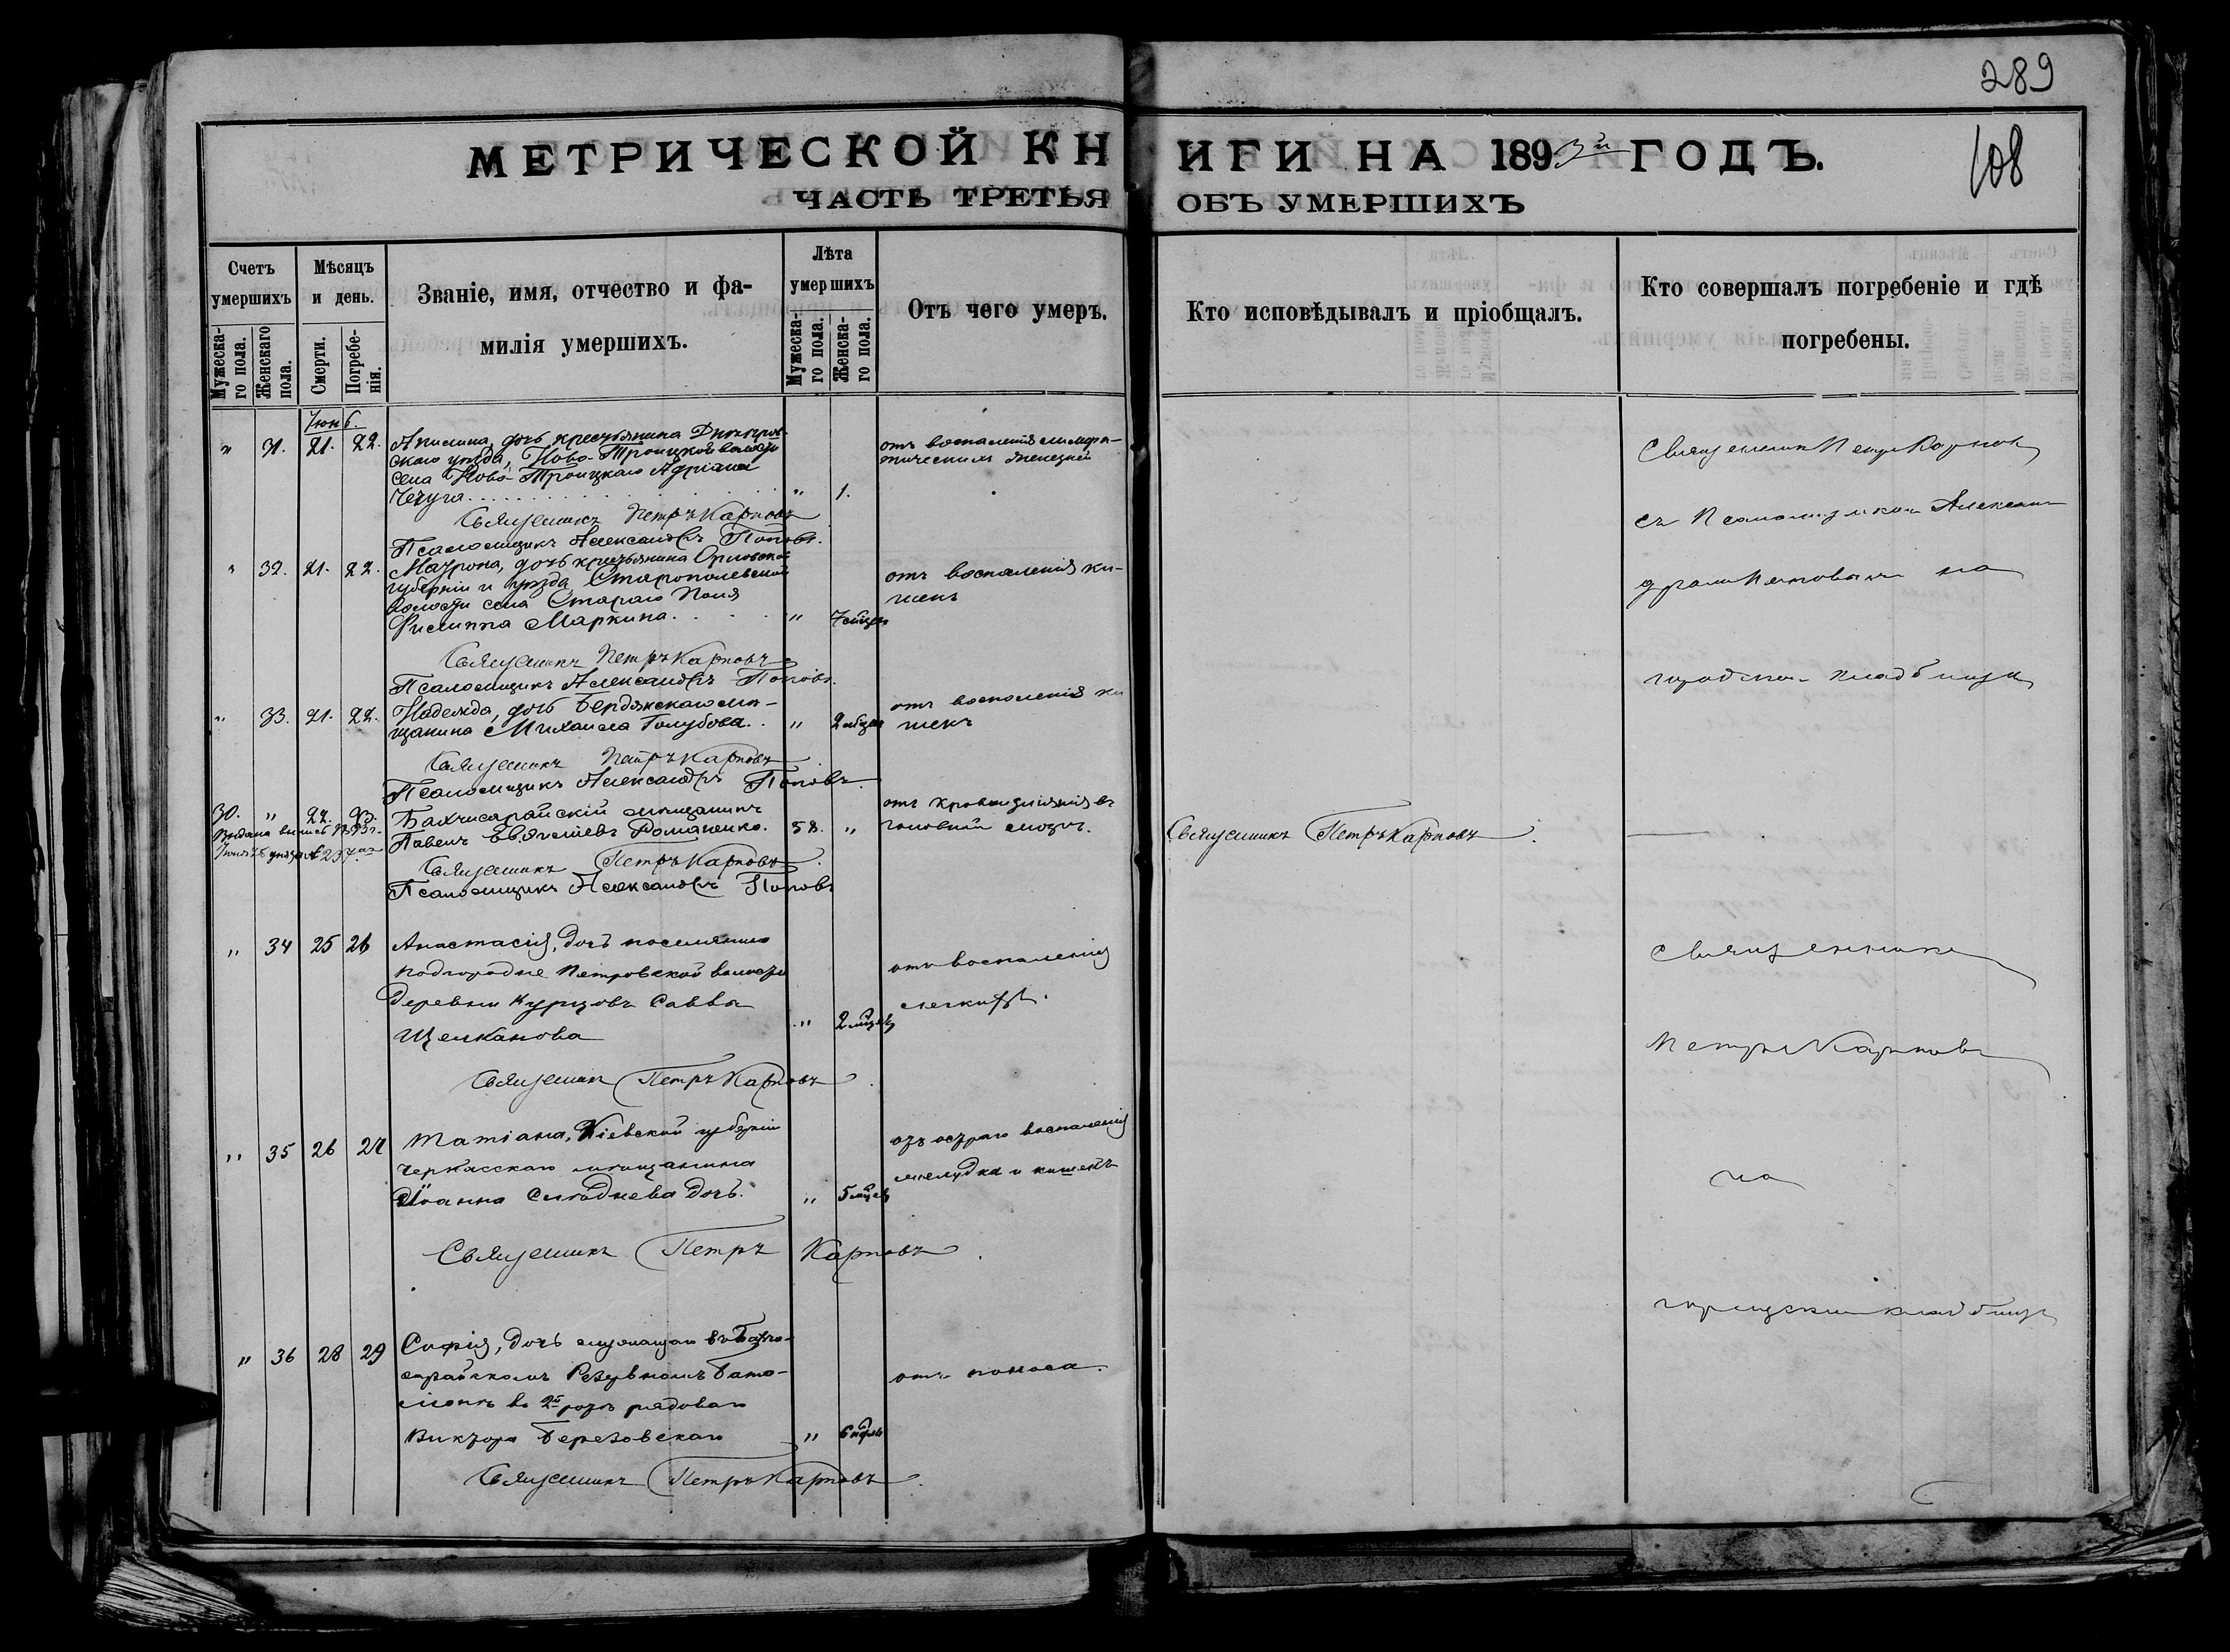 289
108
МЕТРИЧЕСКОЙ КНИГИ НА 1893й ГОДЪ.
ЧАСТЬ ТРЕТЬЯ ОБЪ УМЕРШИХЪ
Счетъ умершихъ
Мужескаго пола.
Женскаго пола.
Мѣсяцъ и день.
Смерти.
Погребенія.
Званіе, имя, отчество и фамилія умершихъ.
Лѣта умершихъ
Мужескаго пола.
Женскаго пола.
Отъ чего умеръ.
Кто исповѣдывалъ и пріобщалъ.
Кто совершалъ погребеніе и гдѣ погребены.
" 31. 21. 22. Акилина, дочь крестьянина Днѣпров-
скаго уѣзда, Ново-Троицкой волости
села Ново-Троицкаго Адріана
Чечуга " 1.
отъ воспаленія лимфа-
тическихъ железъ
Священникъ Петръ Карповъ
Псаломщикъ Александръ Поповъ.
" 32. 21. 22. Матрона, дочь крестьянина Орловской
губерніи и уѣзда, Старопольской
волости села Стараго Поля
Филиппа Маркина. " 7 мѣцев
отъ воспаленія ки-
шекъ
Священникъ Петръ Карповъ
Псаломщикъ Александръ Поповъ.
" 33. 21. 22. Надежда, дочь Бердянскаго мѣ-
щанина Михаила Голубова. " 2 мѣцев
отъ воспаленія ки
шекъ
Священникъ Петръ Карповъ
Псаломщикъ Александръ Поповъ.
30. " 22. 23. Бахчисарайскій мѣщанинъ
Павелъ Романенко. 58. "
отъ кровоизліянія въ
головной мозгъ.
Священникъ Петръ Карповъ.
Священникъ Петръ Карповъ.
Псаломщикъ Александръ Поповъ
Священникъ Петръ Карповъ
съ Псаломщикомъ Александромъ Поповымъ на
городскомъ кладбищѣ
" 34 25 26 Анастасія, дочь поселянина
Подгородне Петровской волости
деревни Курцовъ Саввы
Щелканова " 2 мѣцев
отъ воспаленія
легкихъ.
Священникъ Петръ Карповъ.
" 35 26 27 Татіана, Кіевской губерніи
Черкасскаго мѣщанина
Іоанна дочь. " 5 мѣцев
отъ остраго воспаленія
желудка и кишекъ
Священникъ Петръ Карповъ.
" 36 28 29 Софія, дочь служащаго въ Бахчи-
сарайскомъ Резервномъ Бата-
ліонѣ въ 2й ротѣ рядоваго
Виктора Березовскаго " 6 ндѣль
отъ поноса.
Священникъ Петръ Карповъ.
Священникъ
Петръ Карповъ
на
городскомъ кладбищѣ